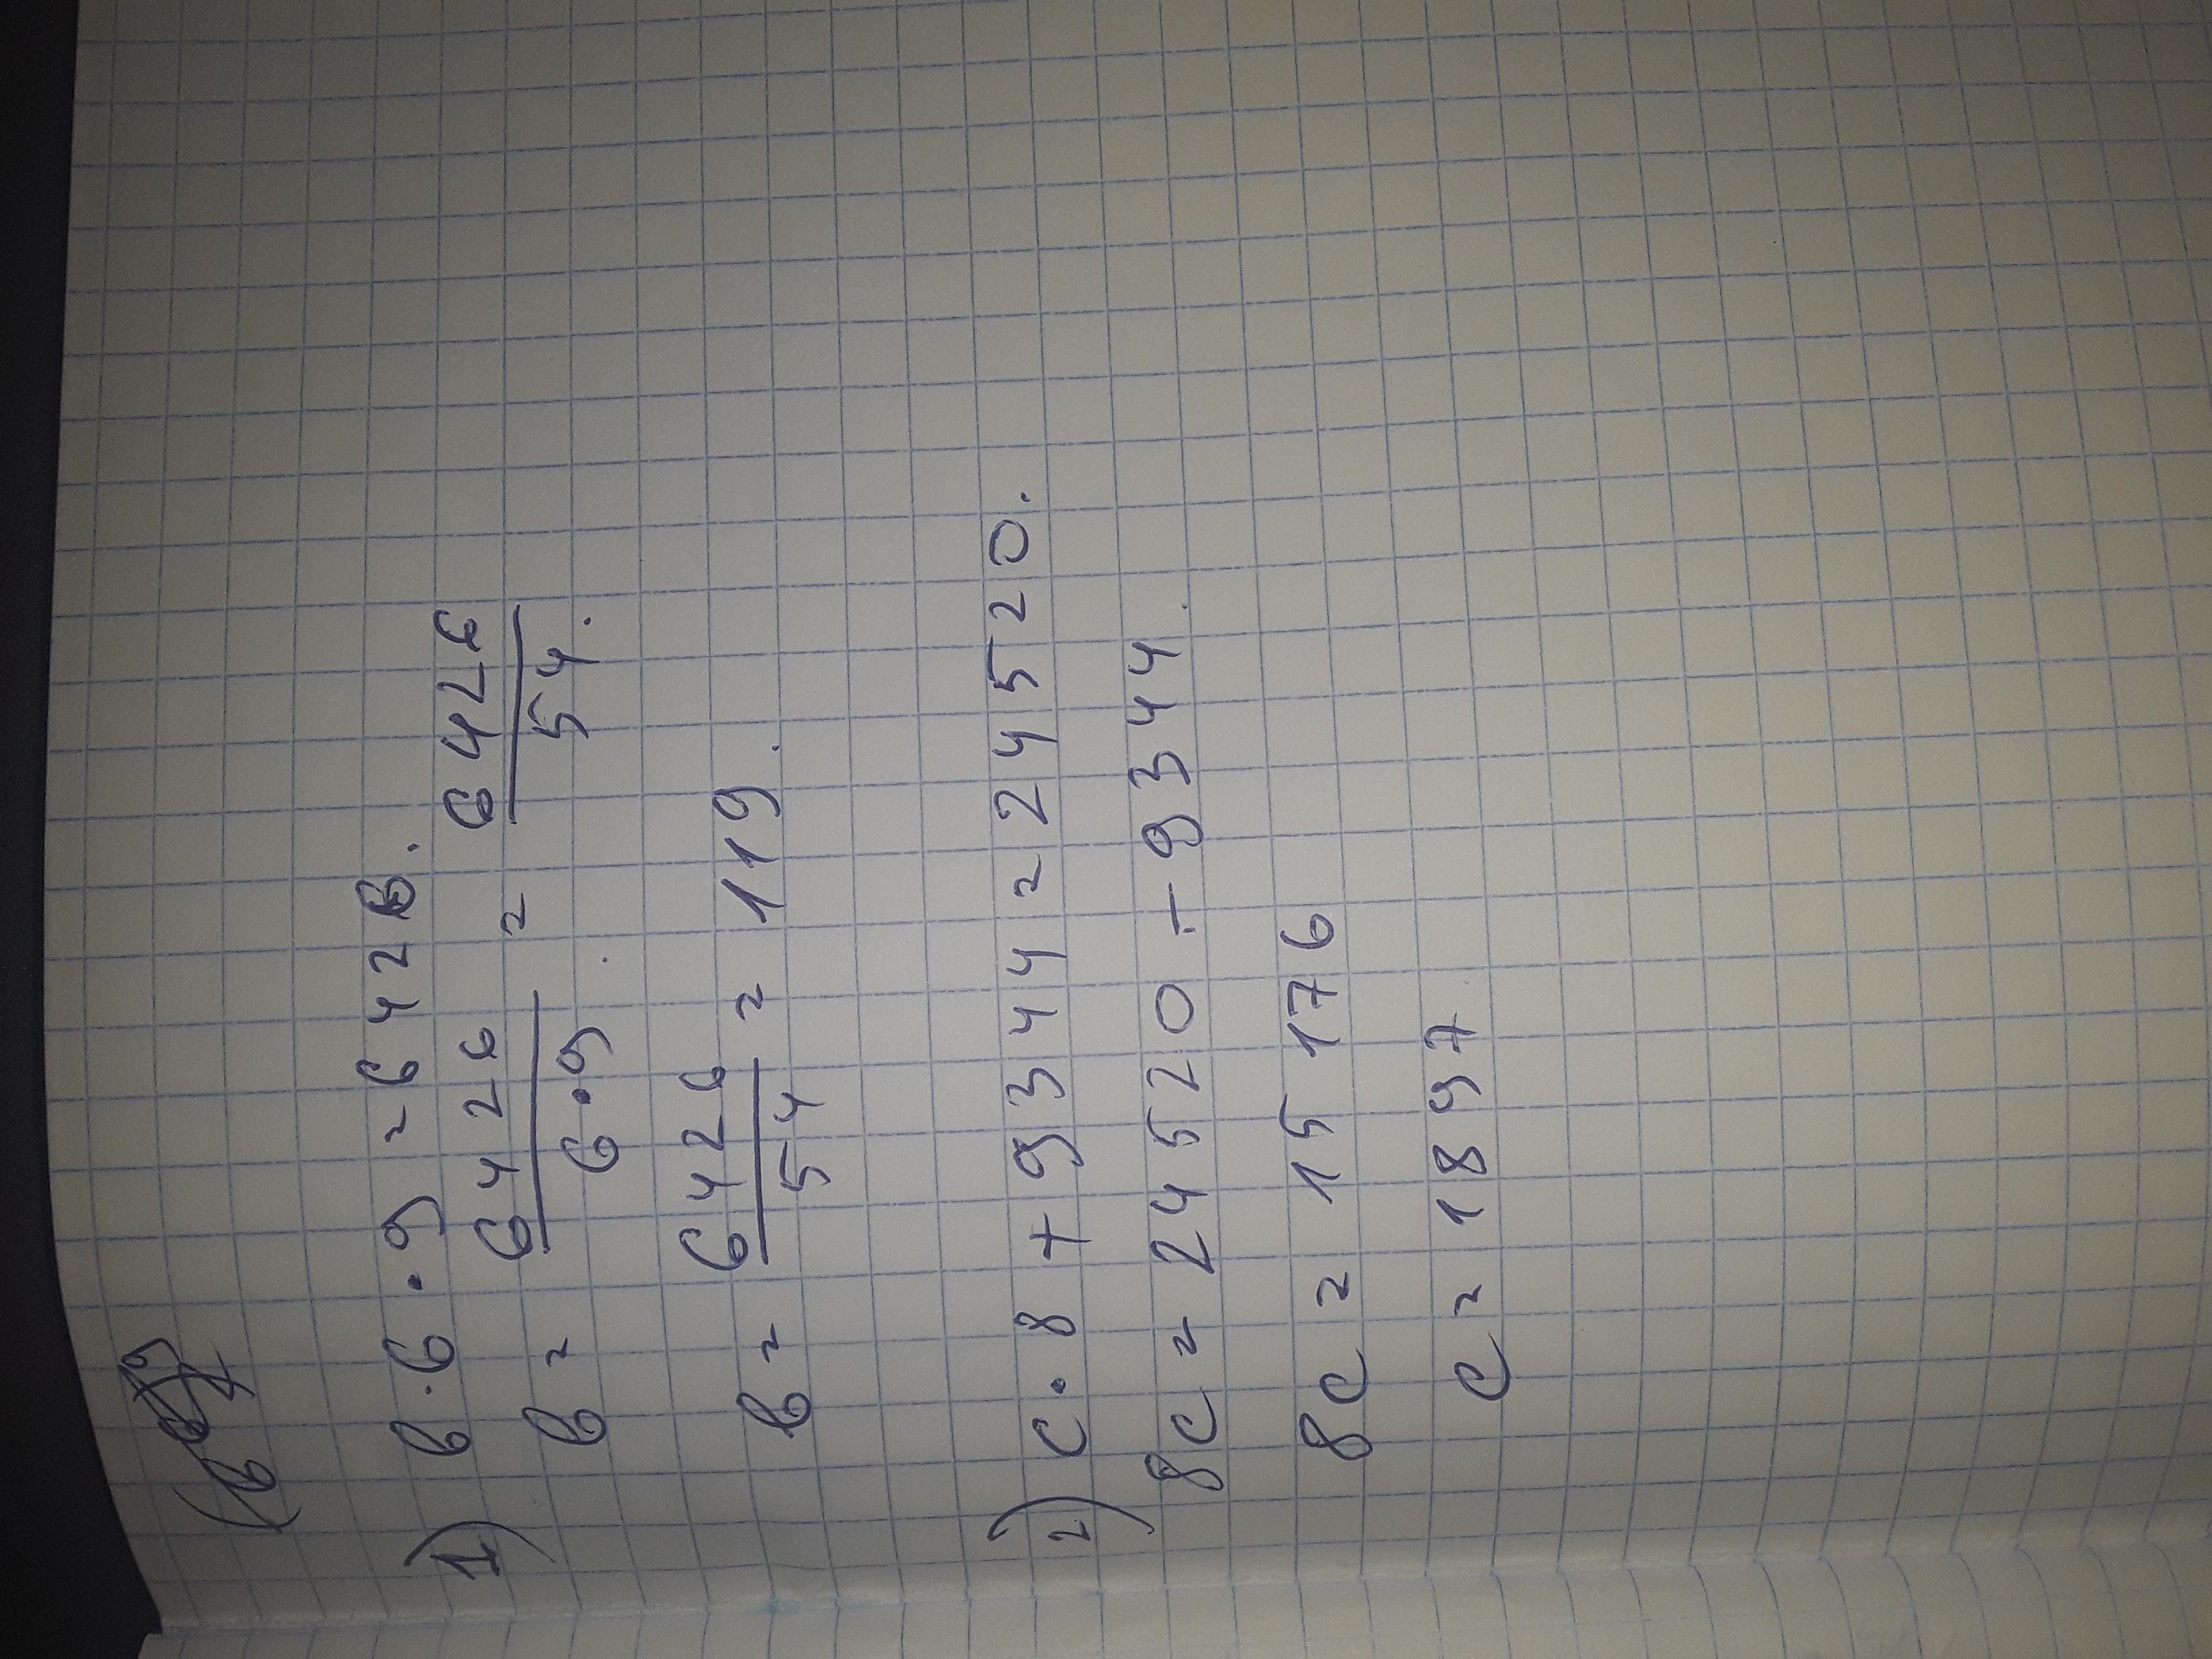 1) в · 6 · 9 = 6426.
в = 6426/6·9 = 6426/54.
в = 6426/54 = 119.
2) c · 8 + 9344 = 24520.
8c = 24520 - 9344.
8c = 15176
c = 1897